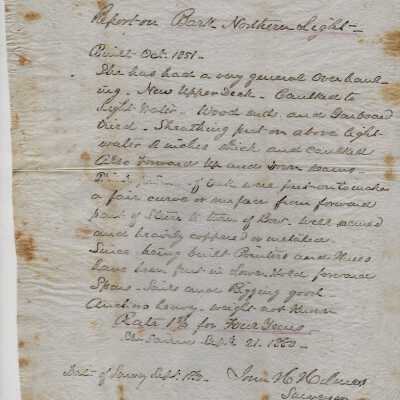 Report on Bark Northern Light—
Built Oct. 1851.
She has had a very general Overhaul-
ing. New Upper Deck. Caulked to
light Water. Wood ends and Garboard
tried. Sheathing put on above light
water 2 inches thick and caulked
Also Forward Up and down seams.
of were put on to make
a fair curve or surface from forward
part of to turn of Bow. well secured
and heavily coppered or metaled.
Since being built Pointers and Knees
have been put in Lower Hold forward
Spars. Sails and Rigging good.
Anchors heavy. weight not Known
Rate 1½ for Four Years.
Sept. 21. 1860.
Date of Survey Sept. John H Holmes
Surveyor